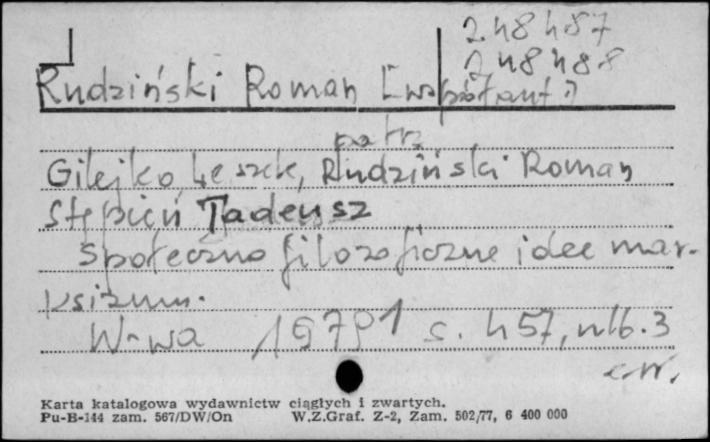 248487
248488
Rudziński Roman [współaut.]
patrz
Gilejko Leszek, Rudziński Roman
Stępień Tadeusz
Społeczno filozoficzne idee mar-
ksizmu.
W-wa 1979 s. 457, nlb. 3
Karta katalogowa wydawnictw ciągłych i zwartych.
Pu-B-144 zam. 567/DW/On W.Z.Graf. Z-2, Zam. 502/77, 6 400 000